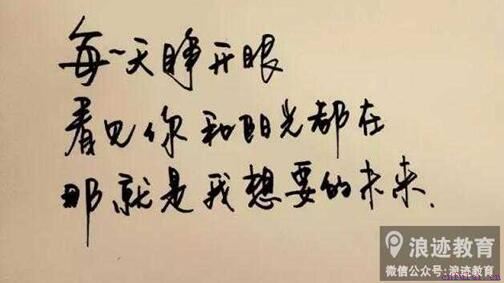 每一天睁开眼
看见你和阳光都在
那就是我想要的未来.
浪迹教育
微信公众号:浪迹教育